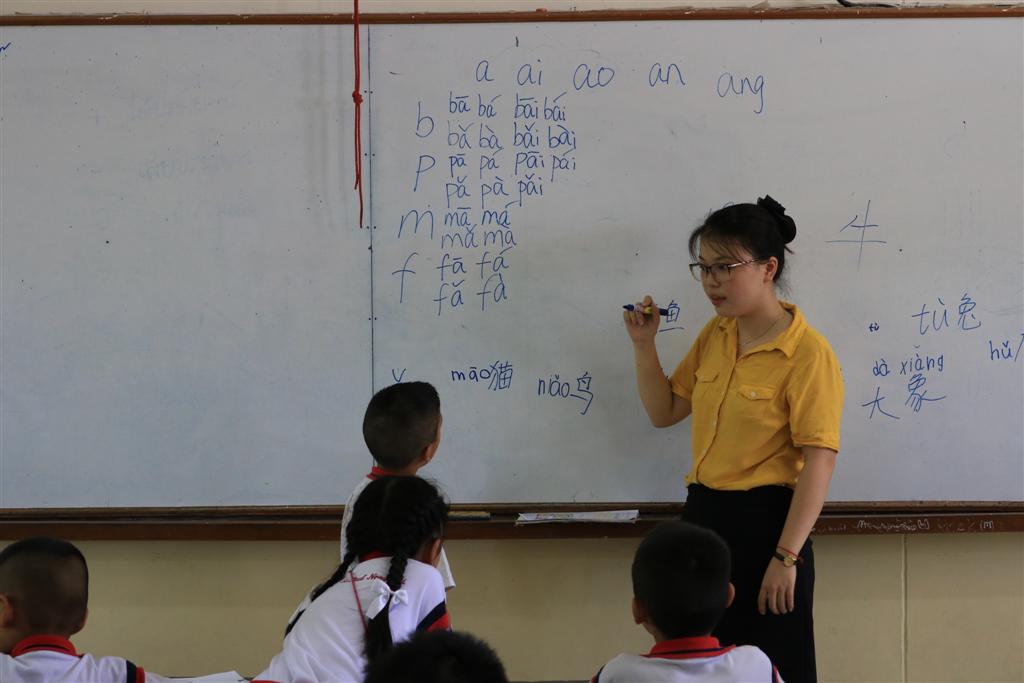 a ai ao an ang
b bā bá bāi bái
bǎ bà bǎi bài
p pā pá pāi pái
pǎ pà pǎi
m mā má
mǎ mà
f fā fá
fǎ fà
牛
鱼
tù tù 兔
māo猫 niǎo鸟
dà xiàng hǔ
大 象